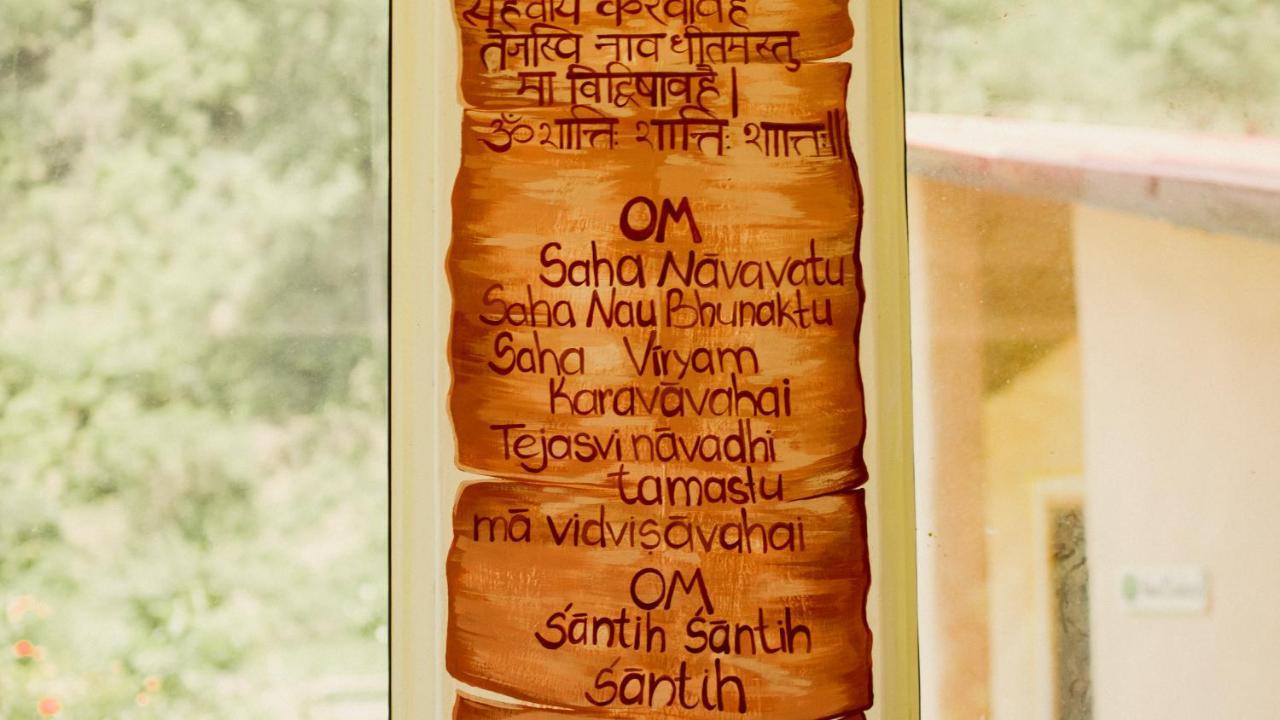 सहवीर्यं करवावहै
तेजस्वि नाव धीतमस्तु
मा विद्विषावहै |
ॐ शान्तिः शान्तिः शान्तिः ||
OM
Saha Nāvavatu
Saha Nau Bhunaktu
Saha Vīryam
Karavāvahai
Tejasvi nāvadhi
tamastu
mā vidviṣāvahai
OM
Śāntih Śāntih
Śāntih